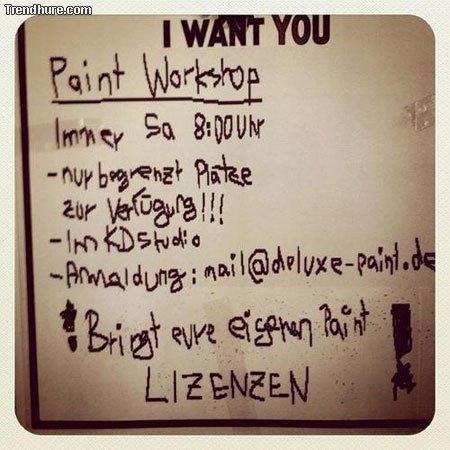 Trendhure.com
I WANT YOU
Paint Workshop
Immer Sa 8:00 Uhr
- nur begrenzt Plätze
zur Verfügung!!!
- Im KD Studio
- Anmeldung: mail@deluxe-paint.de
! Bringt eure eigenen Paint !
LIZENZEN